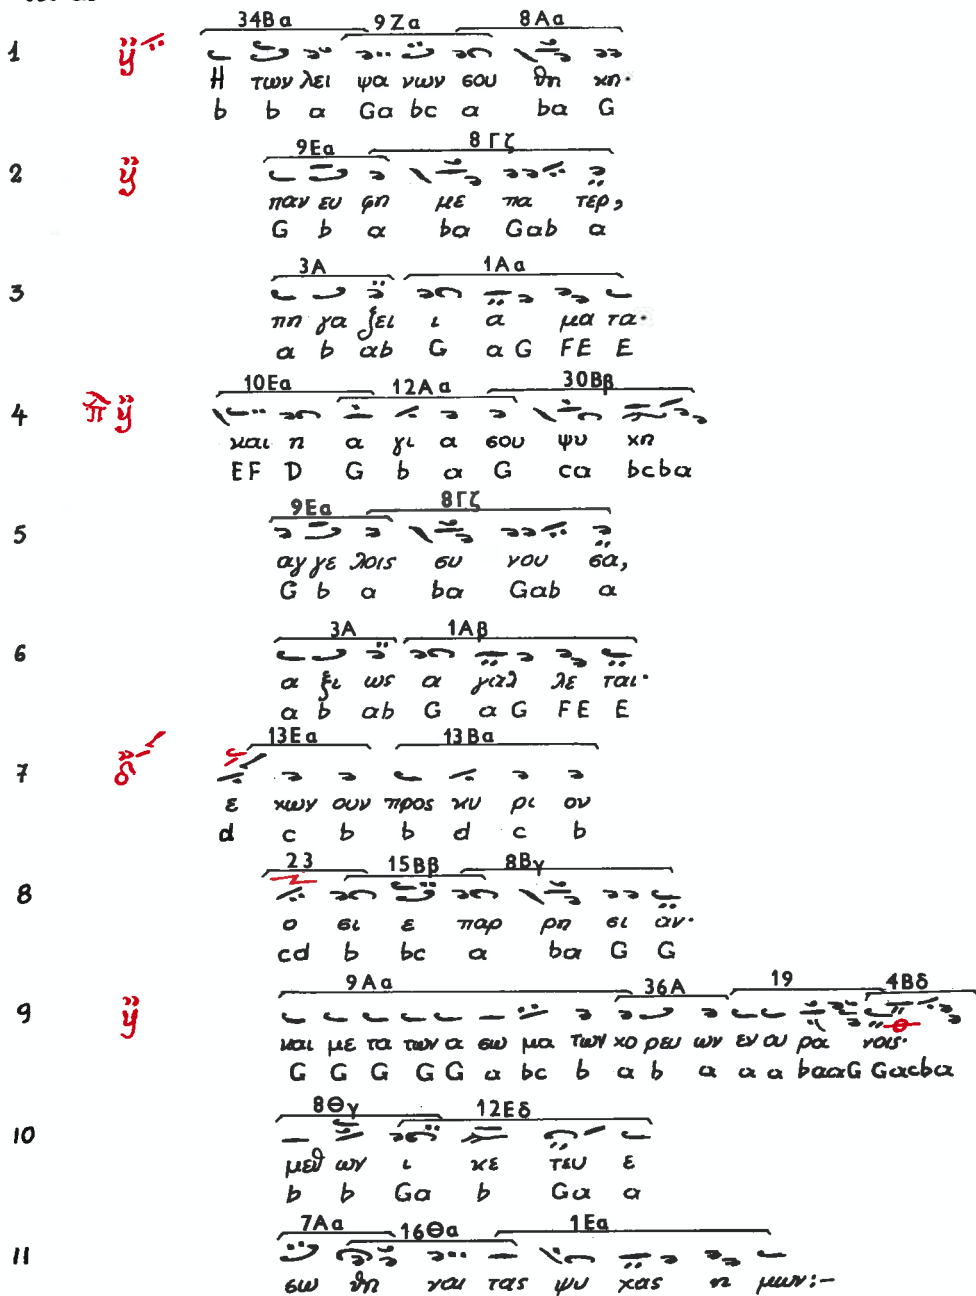 34Βα 9Ζα 8Αα
1 ÿ
Η των λει ψα νων σου θη κη·
b b a Ga bc a ba G
9Εα 8Γζ
2 ÿ
παν ευ φη με πα τερ,
G b a ba Gab a
3Α 1Αα
3
πη γα ζει ι α μα τα·
a b ab G a G FE E
10Εα 12Αα 30Ββ
4 π ÿ
και η α γι α σου ψυ χη
EF D G b a G ca bcba
9Εα 8Γζ
5
αγ γε λοις συ νου σα,
G b a ba Gab a
3Α 1Αβ
6
α ξι ως α γιαλ λε ται·
a b ab G a G FE E
13Εα 13Βα
7 δ
ε χων ουν προς κυ ρι ον
d c b b d c b
23 15Ββ 8Βγ
8
ο σι ε παρ ρη σι αν·
cd b bc a ba G G
9Αα 36Α 19 4Βδ
9 ÿ
και με τα των α σω μα των χο ρευ ων εν ου ρα νοις·
G G G G G a bc b a b a a a baaG Gacba
8Θγ 12Εδ
10
μεθ ων ι κε τευ ε
b b Ga b Ga a
7Αα 16Θα 1Εα
11
σω θη ναι τας ψυ χας η μων:–